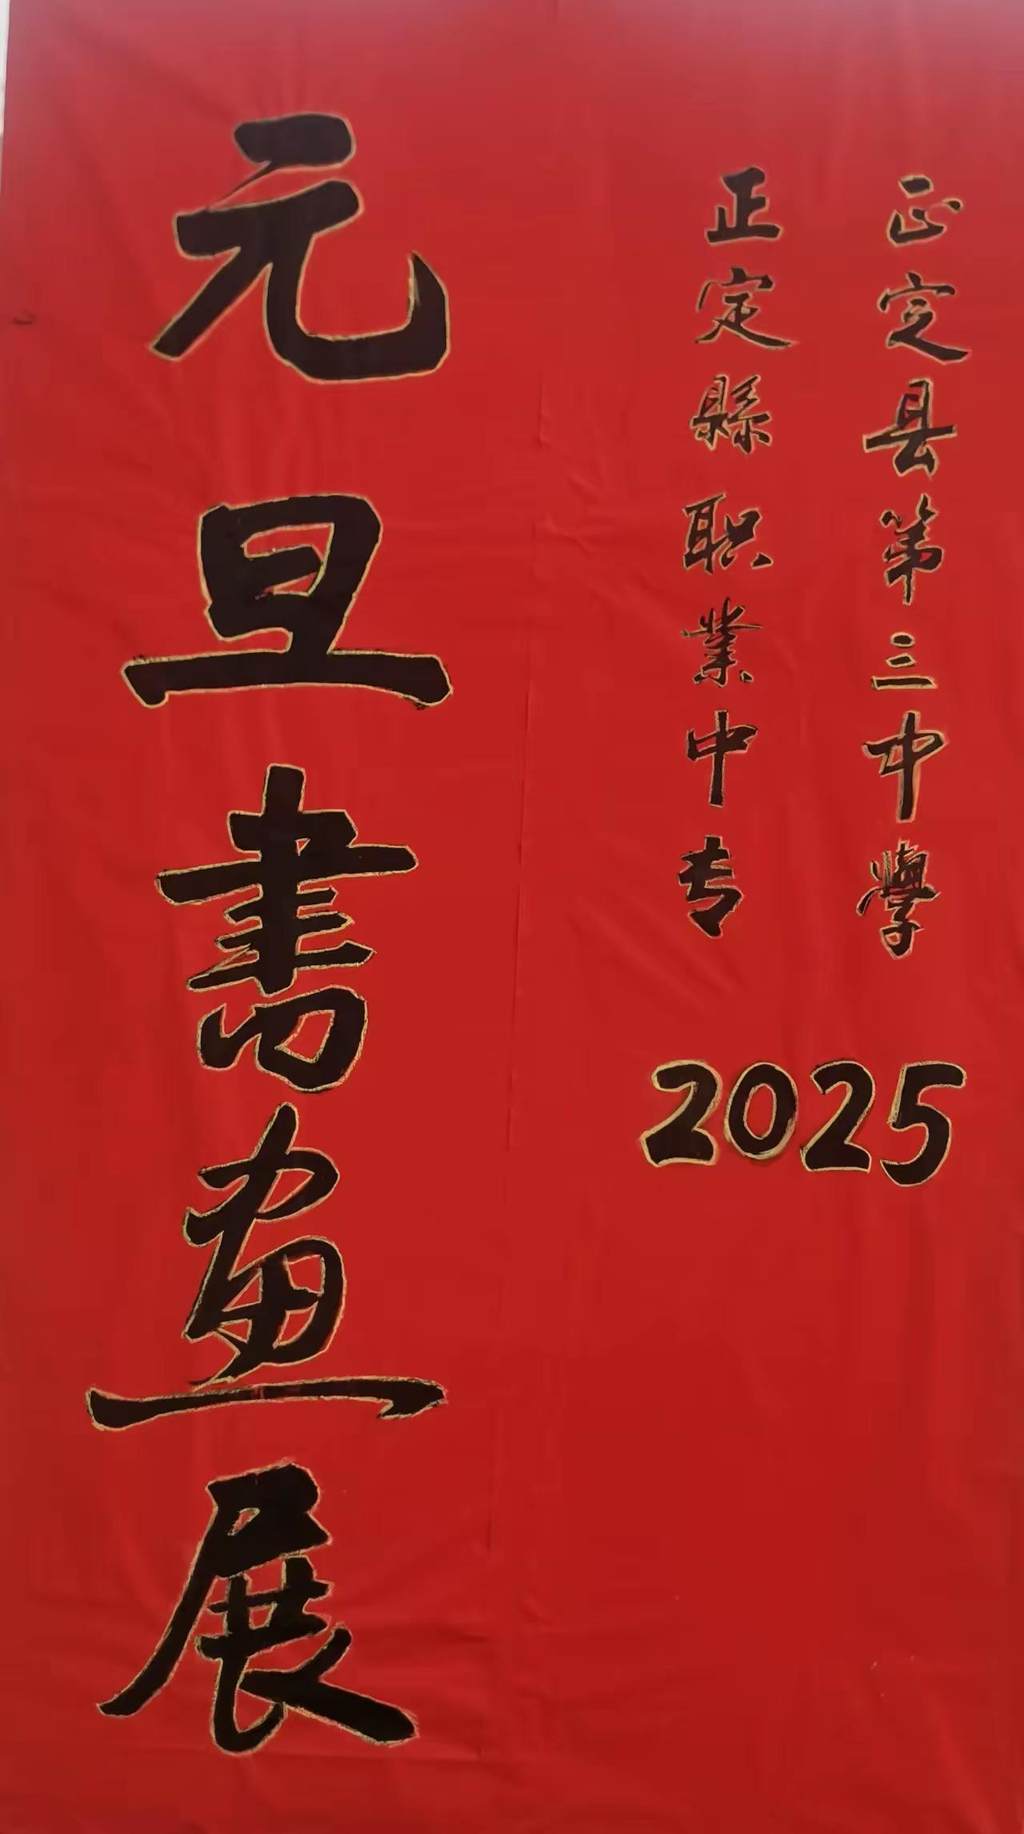 正定县第三中學
正定縣职業中专
2025
元旦書画展